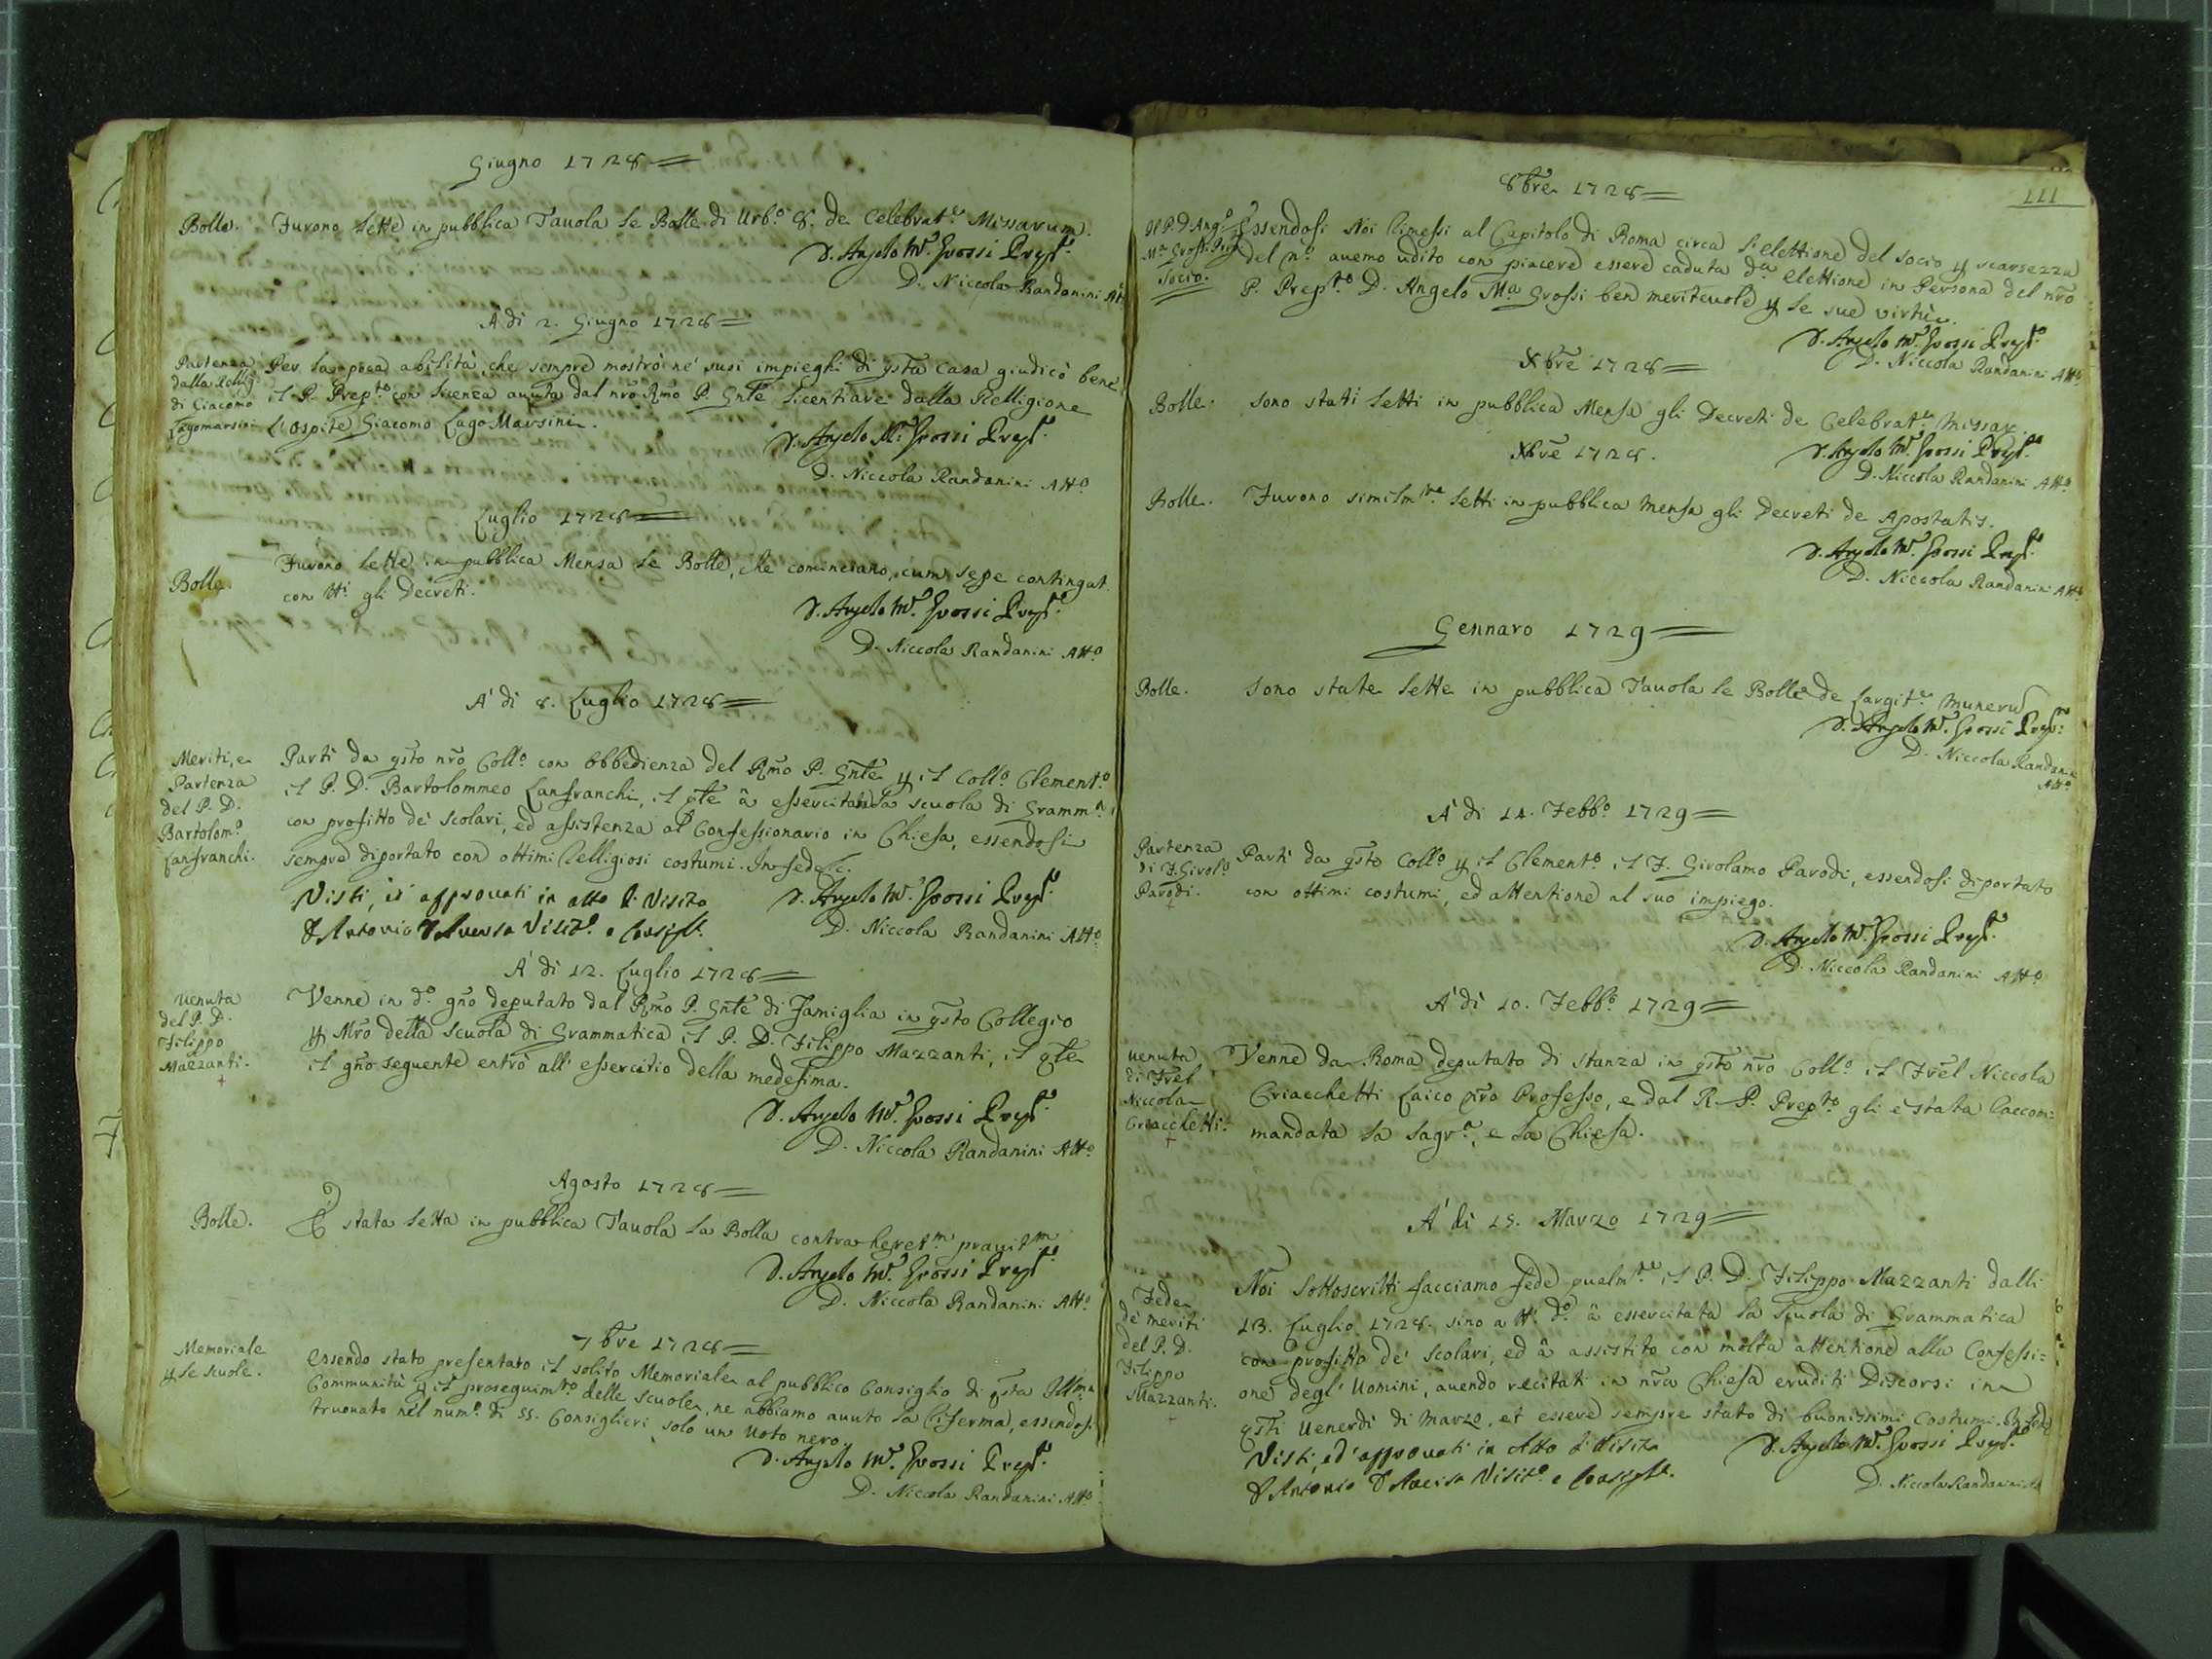 Giugno 1728
Bolle. Furono lette in pubblica Tauola le Bolle di Urb.º 8. de Celebrat.e Missarum.
D. Angelo M.ª Grossi Prep.to
D. Niccola Randanini Att.º
A' di 2. Giugno 1728
Partenza
dalla Relig.
di Giacomo
Lagomarsini
Per la poca abilità, che sempre mostrò ne' suoi impieghi di qsta Casa giudicò bene
il P. Prep.to con licenza auuta dal nro Rmo P. Gnle licentiare dalla Relligione
l'ospite Giacomo LagoMarsine.
D. Angelo M.ª Grossi Prep.to
D. Niccola Randanini Att.º
Luglio 1728
Bolle.
Furono lette in pubblica Mensa le Bolle, che cominciano, cum sepe contingat.
con tt.i gli Decreti.
D. Angelo M.ª Grossi Prep.to
D. Niccola Randanini Att.º
A' di 8. Luglio 1728
Meriti, e
Partenza
del P. D.
Bartolom.º
Lanfranchi.
Partì da qsto nro Coll.º con obbedienza del Rmo P. Gnle p il Coll.º Clement.º
il P. D. Bartolommeo Lanfranchi, il qle à essercitata la scuola di Gramm.ª
con profitto de' scolari, ed assistenza al Confessionario in Chiesa, essendosi
sempre diportato con ottimi Relligiosi costumi. In fede &c.
Visti, ed approuati in atto di Visita
D. Antonio D'Auersa Visit.e e Consigl.
D. Angelo M.ª Grossi Prep.to
D. Niccola Randanini Att.º
A' di 12. Luglio 1728
Uenuta
del P. D.
Filippo
Mazzanti.
Venne in d.º gno deputato dal Rmo P. Gnle di Famiglia in qsto Collegio
p Mro della scuola di Grammatica il P. D. Filippo Mazzanti, il qle
il gno seguente entrò all' essercitio della medesima.
D. Angelo M.ª Grossi Prep.to
D. Niccola Randanini Att.º
Agosto 1728
Bolle. È stata letta in pubblica Tauola la Bolla contra heret.m prauit.m
D. Angelo M.ª Grossi Prep.to
D. Niccola Randanini Att.º
7bre 1728
Memoriale
p le scuole.
Essendo stato presentato il solito Memoriale al pubblico Consiglio di qsta Ill.ma
Communità p il proseguim.to delle scuole, ne abbiamo auuto la Riferma, essendosi
truouato nel num.º di 55. Consiglieri solo un uoto nero.
D. Angelo M.ª Grossi Prep.to
D. Niccola Randanini Att.º
111
8bre 1728
Il P. D. Ang.º
M.ª Grossi Prep.to
Socio.
Essendosi Noi rimessi al Capitolo di Roma circa l'elettione del socio p scarsezza
del n.º auemo udito con piacere essere caduta d.ª elettione in Persona del nro
P. Prep.to D. Angelo M.ª Grossi ben meriteuole p le sue virtù.
D. Angelo M.ª Grossi Prep.to
D. Niccola Randanini Att.º
Xbre 1728
Bolle. Sono stati letti in pubblica Mensa gli Decreti de Celebrat.e Missar.
D. Angelo M.ª Grossi Prep.to
D. Niccola Randanini Att.º
Xbre 1728.
Bolle. Furono similm.te letti in pubblica Mensa gli Decreti de Apostatis.
D. Angelo M.ª Grossi Prep.to
D. Niccola Randanini Att.º
Gennaro 1729
Bolle. Sono state lette in pubblica Tauola le Bolle de largit.e munerũ
D. Angelo M.ª Grossi Prep.to
D. Niccola Randanini
Att.º
A' di 14. Febb.º 1729
Partenza
di F. Girol.º
Parodi.
Partì da qsto Coll.º p il Clement.º il F. Girolamo Parodi, essendosi diportato
con ottimi costumi, ed attentione al suo impiego.
D. Angelo M.ª Grossi Prep.to
D. Niccola Randanini Att.º
A' di 10. Febb.º 1729
Uenuta
di Frel
Niccola
Criacchetti.
Venne da Roma deputato di stanza in qsto nro Coll.º il Frel Niccola
Criacchetti Laico nro Professo, e dal R. P. Prep.to gli è stata raccom=
mandata la sagr.ª, e la Chiesa.
A' di 15. Marzo 1729
Fede
de' meriti
del P. D.
Filippo
Mazzanti.
Noi sottoscritti facciamo fede qualm.te il P. D. Filippo Mazzanti dalli
13. Luglio 1728. sino a tt.º d.º à essercitata la scuola di Grammatica
con profitto de' scolari, ed à assistito con molta attentione alla Confessi=
one degl' Uomini, auendo recitati in nra Chiesa eruditi Discorsi in
qsti Uenerdì di Marzo, et essere sempre stato di buonissimi Costumi. In fede
Visti, ed approuati in Atto di Visita
D. Antonio D'Auersa Visit.e e Consigl.
D. Angelo M.ª Grossi Prep.to
D. Niccola Randanini Att.